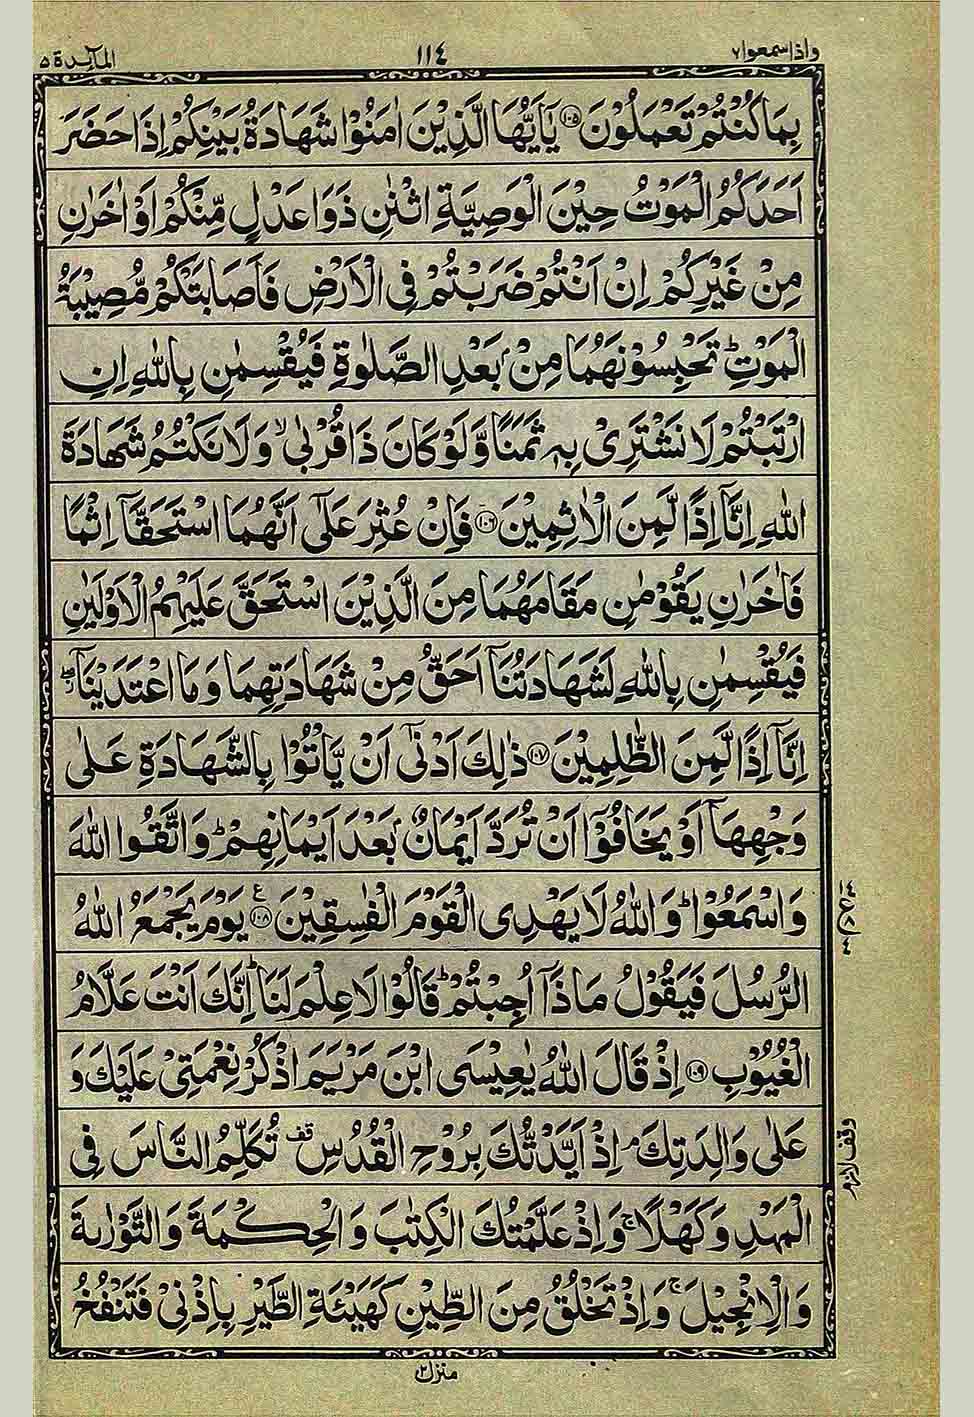 واذاسمعوا۷ ۱۱٤ المآئدة ۵
بِمَا كُنْتُمْ تَعْمَلُوْنَ ۝۱۰۵ يٰۤاَيُّهَا الَّذِيْنَ اٰمَنُوْا شَهَادَةُ بَيْنِكُمْ اِذَا حَضَرَ
اَحَدَكُمُ الْمَوْتُ حِيْنَ الْوَصِيَّةِ اثْنٰنِ ذَوَا عَدْلٍ مِّنْكُمْ اَوْ اٰخَرٰنِ
مِنْ غَيْرِكُمْ اِنْ اَنْتُمْ ضَرَبْتُمْ فِى الْاَرْضِ فَاَصَابَتْكُمْ مُّصِيْبَةُ
الْمَوْتِؕ تَحْبِسُوْنَهُمَا مِنْۢ بَعْدِ الصَّلٰوةِ فَيُقْسِمٰنِ بِاللّٰهِ اِنِ
ارْتَبْتُمْ لَا نَشْتَرِىْ بِهٖ ثَمَنًا وَّلَوْ كَانَ ذَا قُرْبٰىۙ وَلَا نَكْتُمُ شَهَادَةَ
اللّٰهِ اِنَّاۤ اِذًا لَّمِنَ الْاٰثِمِيْنَ ۝۱۰۶ فَاِنْ عُثِرَ عَلٰۤى اَنَّهُمَا اسْتَحَقَّاۤ اِثْمًا
فَاٰخَرٰنِ يَقُوْمٰنِ مَقَامَهُمَا مِنَ الَّذِيْنَ اسْتَحَقَّ عَلَيْهِمُ الْاَوْلَيٰنِ
فَيُقْسِمٰنِ بِاللّٰهِ لَشَهَادَتُنَاۤ اَحَقُّ مِنْ شَهَادَتِهِمَا وَمَا اعْتَدَيْنَاۤ ۖ
اِنَّاۤ اِذًا لَّمِنَ الظّٰلِمِيْنَ ۝۱۰۷ ذٰلِكَ اَدْنٰۤى اَنْ يَّاْتُوْا بِالشَّهَادَةِ عَلٰى
وَجْهِهَاۤ اَوْ يَخَافُوْۤا اَنْ تُرَدَّ اَيْمَانٌۢ بَعْدَ اَيْمَانِهِمْؕ وَاتَّقُوا اللّٰهَ
وَاسْمَعُوْاؕ وَاللّٰهُ لَا يَهْدِى الْقَوْمَ الْفٰسِقِيْنَ ۝۱۰۸ ع يَوْمَ يَجْمَعُ اللّٰهُ
الرُّسُلَ فَيَقُوْلُ مَاذَاۤ اُجِبْتُمْؕ قَالُوْا لَا عِلْمَ لَنَاؕ اِنَّكَ اَنْتَ عَلَّامُ
الْغُيُوْبِ ۝۱۰۹ اِذْ قَالَ اللّٰهُ يٰعِيْسَى ابْنَ مَرْيَمَ اذْكُرْ نِعْمَتِىْ عَلَيْكَ وَ
عَلٰى وَالِدَتِكَۘ اِذْ اَيَّدْتُّكَ بِرُوْحِ الْقُدُسِ قف تُكَلِّمُ النَّاسَ فِى
الْمَهْدِ وَكَهْلًاۚ وَاِذْ عَلَّمْتُكَ الْكِتٰبَ وَالْحِكْمَةَ وَالتَّوْرٰىةَ
وَالْاِنْجِيْلَۚ وَاِذْ تَخْلُقُ مِنَ الطِّيْنِ كَهَيْـَٔةِ الطَّيْرِ بِاِذْنِىْ فَتَنْفُخُ
وقف لازم
منزل۲